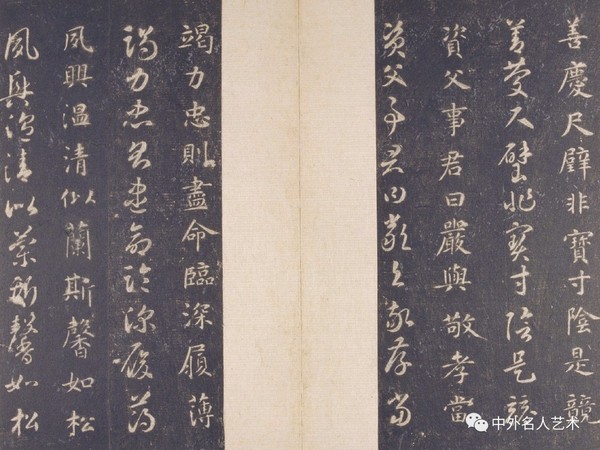 善慶尺璧非寶寸陰是競
善慶尺璧非寶寸陰是競
資父事君曰嚴與敬孝當
資父事君曰嚴與敬孝當
竭力忠則盡命臨深履薄
竭力忠則盡命臨深履薄
夙興温清似蘭斯馨如松
夙興温清似蘭斯馨如松
中外名人艺术